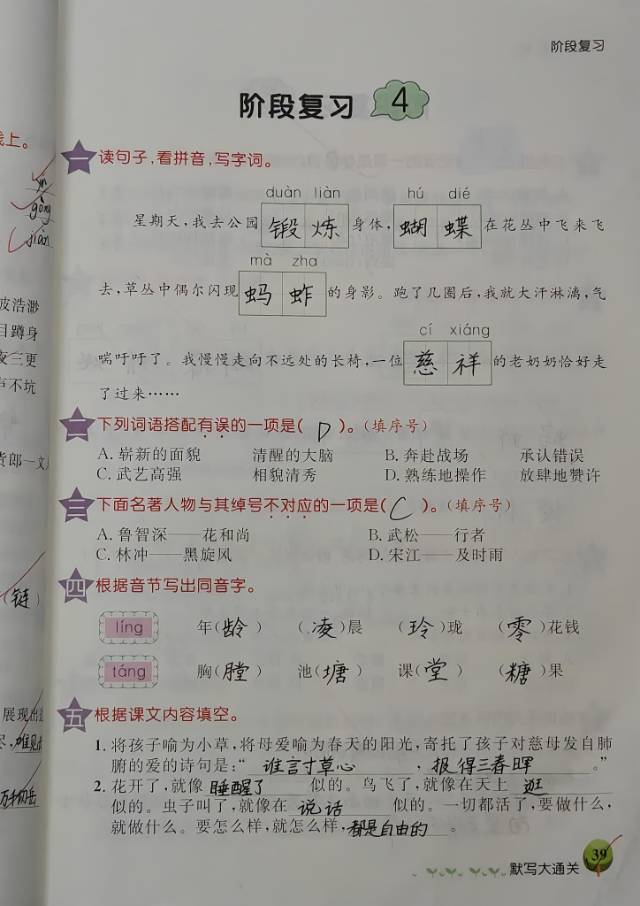 阶段复习
阶段复习 4
线上。
gōng
jiàn
波浩渺
目蹲身
夜三更
声不坑
货郎一文
(链)
展现出
一 读句子,看拼音,写字词。
duàn liàn hú dié
星期天,我去公园 锻炼 身体, 蝴蝶 在花丛中飞来飞
mà zha
去,草丛中偶尔闪现 蚂蚱 的身影。跑了几圈后,我就大汗淋漓,气
cí xiáng
喘吁吁了。我慢慢走向不远处的长椅,一位 慈祥 的老奶奶恰好走
了过来……
二 下列词语搭配有误的一项是( D )。(填序号)
A. 崭新的面貌 清醒的大脑 B. 奔赴战场 承认错误
C. 武艺高强 相貌清秀 D. 熟练地操作 放肆地赞许
三 下面名著人物与其绰号不对应的一项是( C )。(填序号)
A. 鲁智深——花和尚 B. 武松——行者
C. 林冲——黑旋风 D. 宋江——及时雨
四 根据音节写出同音字。
líng 年(龄) (凌)晨 (玲)珑 (零)花钱
táng 胸(膛) 池(塘) 课(堂) (糖)果
五 根据课文内容填空。
1. 将孩子喻为小草,将母爱喻为春天的阳光,寄托了孩子对慈母发自肺
腑的爱的诗句是:“ 谁言寸草心 , 报得三春晖 。”
2. 花开了,就像 睡醒了 似的。鸟飞了,就像在天上 逛
似的。虫子叫了,就像在 说话 似的。一切都活了,要做什么,
就做什么。要怎么样,就怎么样, 都是自由的 。
默写大通关 39